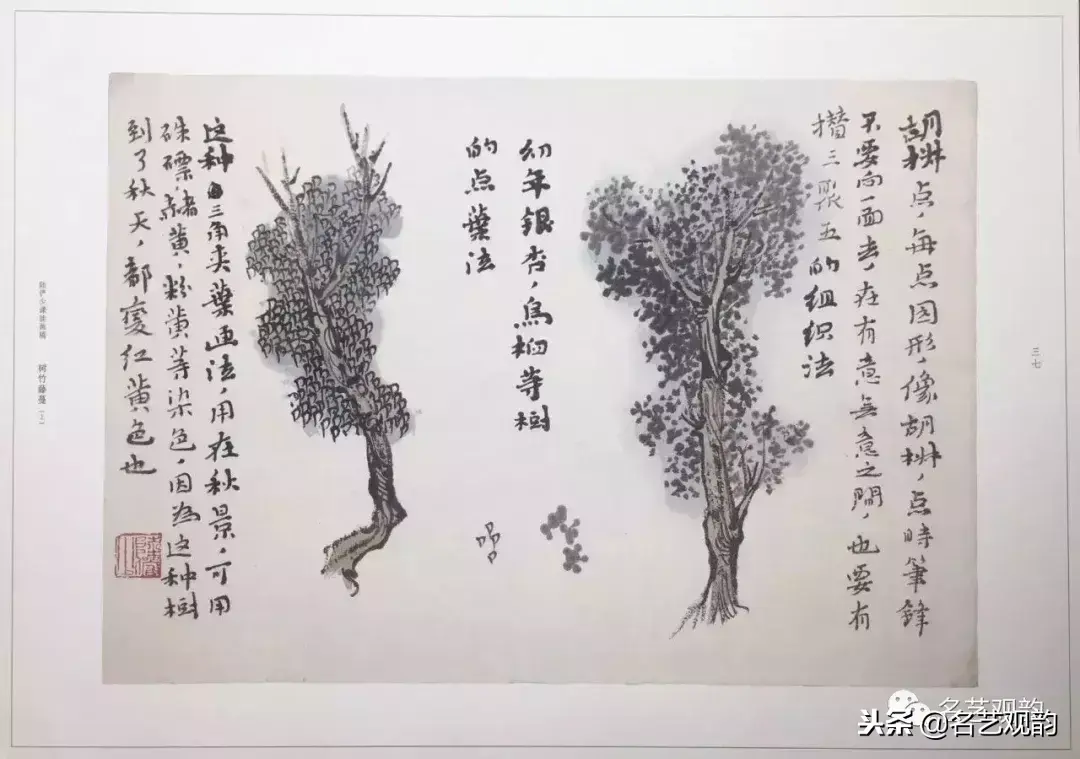 胡椒点，每点圆形，像胡椒，点時筆鋒
不要向一面去，在有意無意之間，也要有
攒三聚五的组织法
幼年銀杏，烏桕等樹
的点葉法
这种三角夹葉画法，用在秋景，可用
硃磦，赭黄，粉黄等染色，因為这种樹
到了秋天，都变红黄色也
三七
陆俨少课徒画稿 树竹藤蔓（上）
名艺观韵
头条@名艺观韵